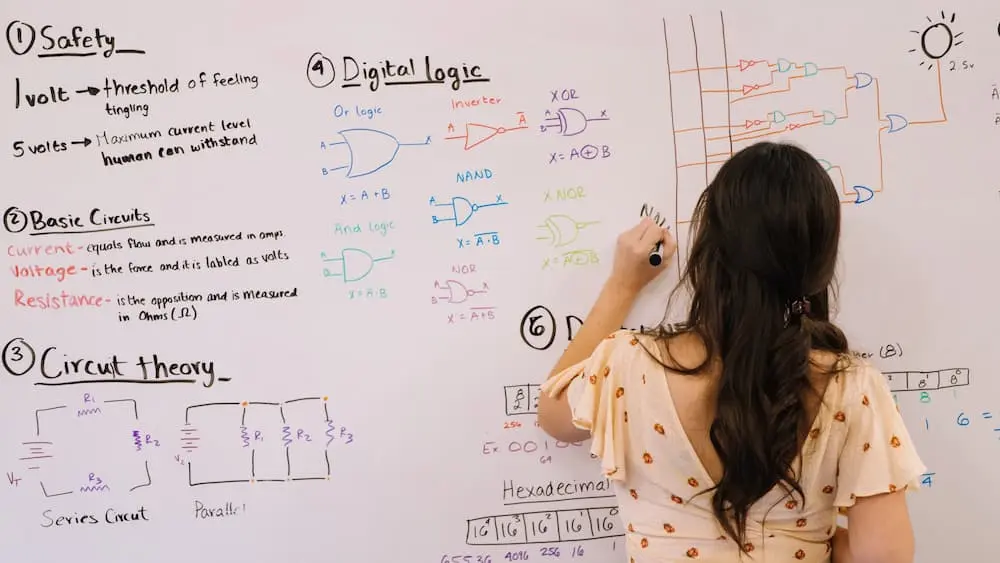 ① Safety
1 volt → threshold of feeling
tingling
5 volts → Maximum current level
human can withstand
② Basic Circuits
Current - equals flow and is measured in amps.
Voltage - is the force and it is labled as volts
Resistance - is the opposition and is measured
in Ohms (Ω)
③ Circuit theory
R1
R2
R3
VT
Series Circut
R1
R2
R3
Parallel
④ Digital logic
Or logic
A
B
X
X = A + B
Inverter
A
A̅
XOR
A
B
X
X = A ⊕ B
And logic
X = A · B
NAND
A
B
X
X = A̅ ̅·̅ ̅B̅
X NOR
NOR
A
B
X
X = A̅+̅B̅
2.5v
⑤
(8)
8¹
8⁰
8
1
1
6 =
4
256
Ex. 001
64
Hexadecimal
16⁴ 16³ 16² 16¹ 16⁰
65536 4096 256 16 1